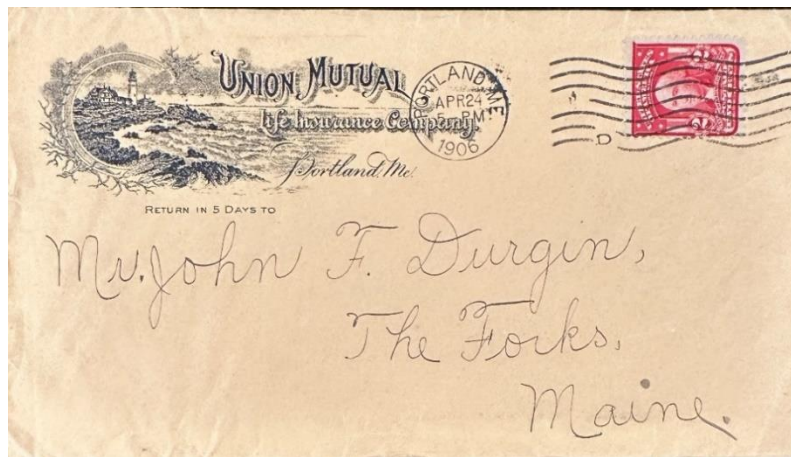 UNION MUTUAL
Life Insurance Company,
Portland, Me.
RETURN IN 5 DAYS TO
PORTLAND, ME.
APR 24
5 - PM
1906
D
2
Mr. John F. Durgin,
The Forks,
Maine.